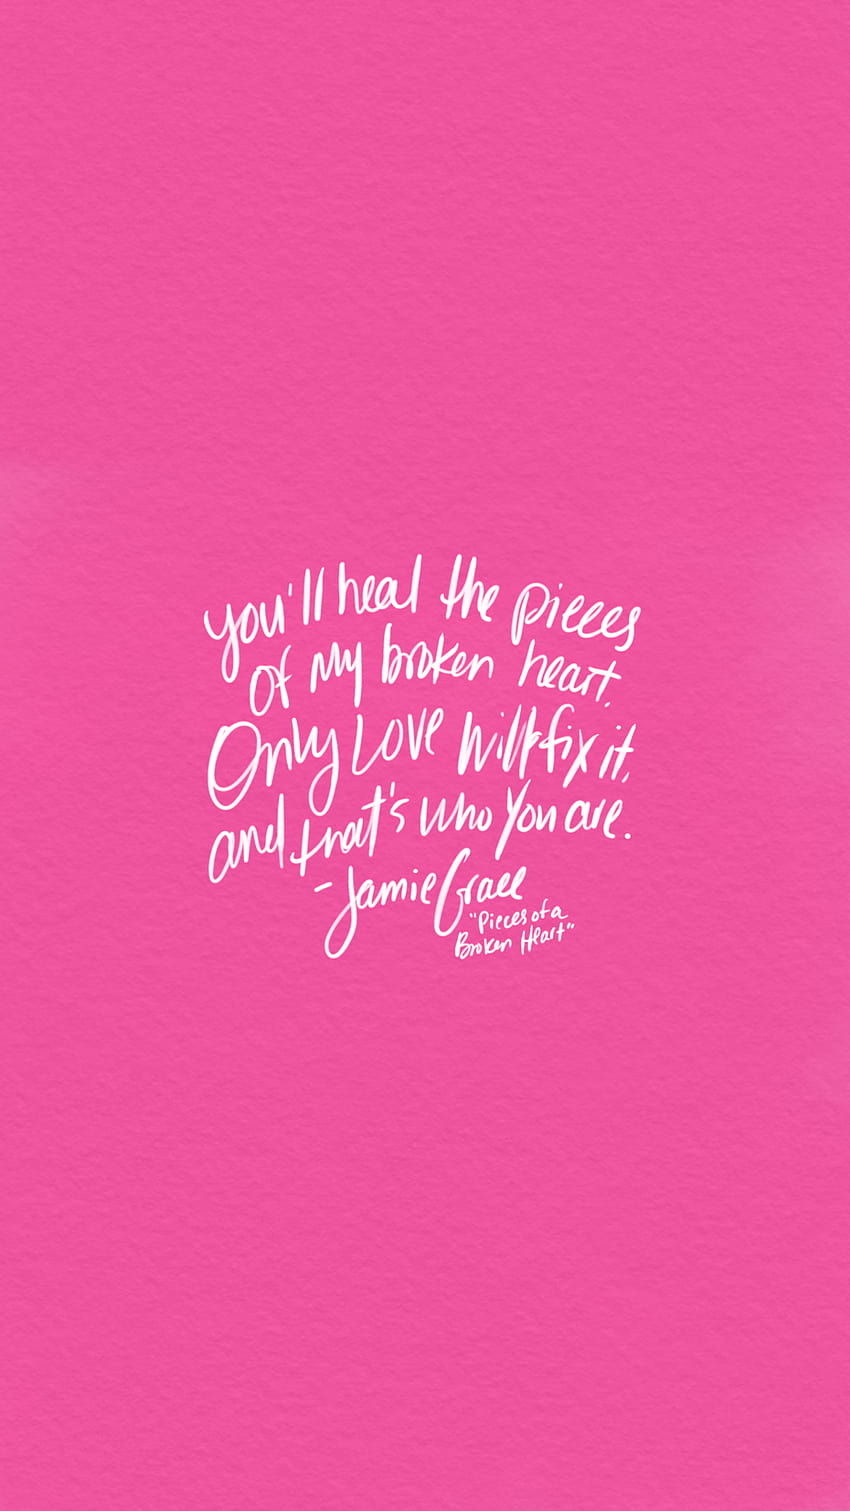 you'll heal the pieces
of my broken heart.
Only Love will fix it,
and that's who You are.
- Jamie Grace
"Pieces of a
Broken Heart"